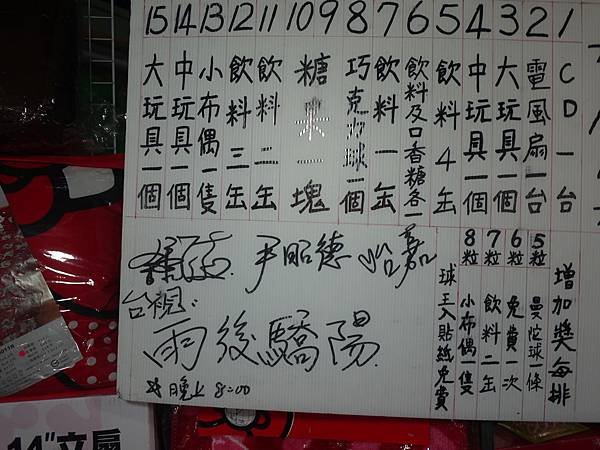 1 CD一台
2 電風扇一台
3 大玩具一個
4 中玩具一個
5 飲料4缶
6 飲料及口香糖各一
7 飲料一缶
8 巧克力球一個
9
10 糖果一塊
11 飲料二缶
12 飲料三缶
13 小布偶一隻
14 中玩具一個
15 大玩具一個
增加獎每排
5粒 曼陀球一條
6粒 免費一次
7粒 飲料二缶
8粒 小布偶一隻
球王入貼紙免費
尹昭德
台視:
雨後驕陽
晚上 8:00
14"立扇